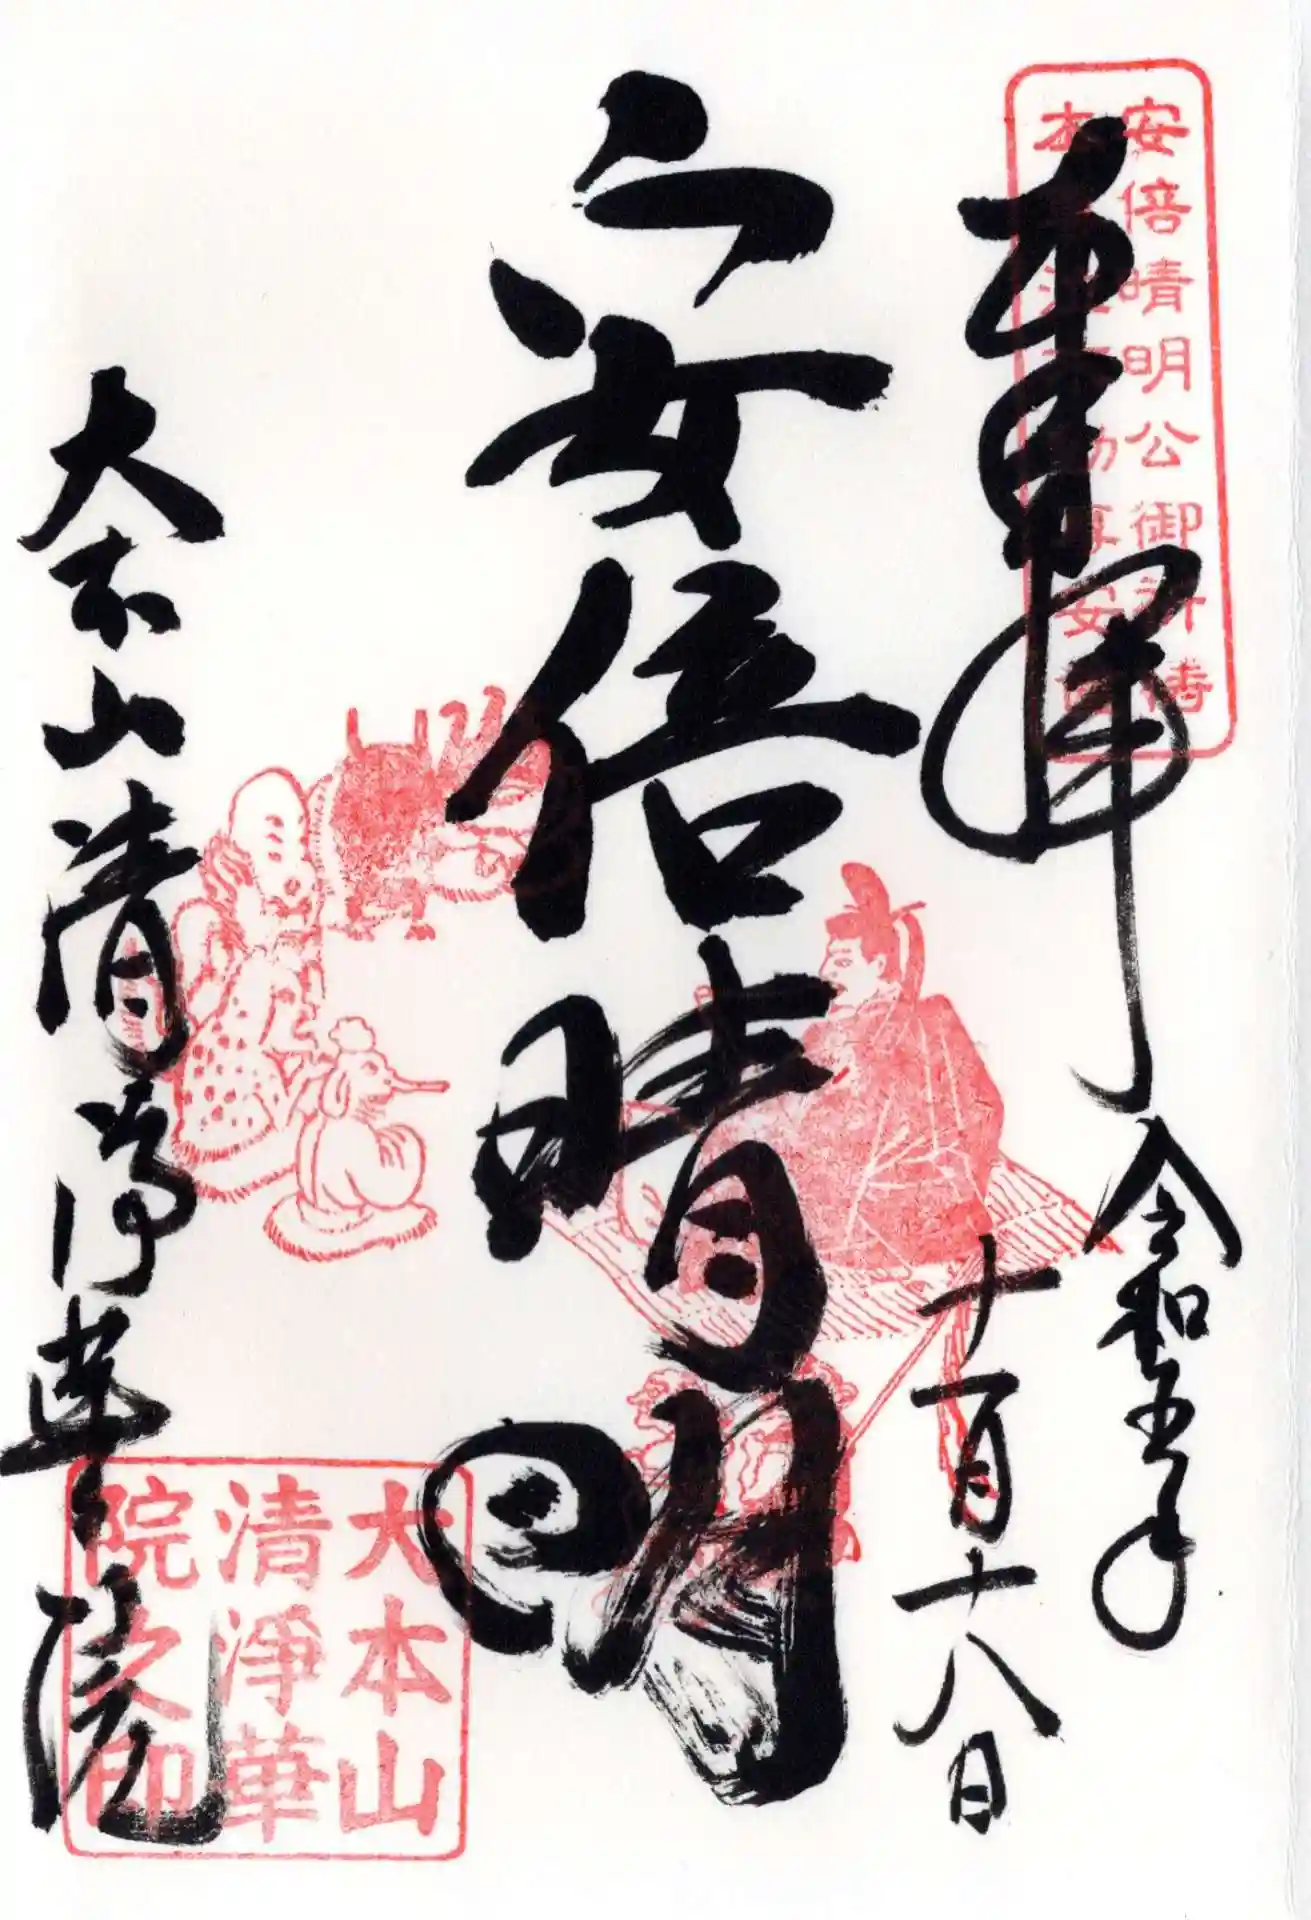 安倍晴明公御祈祷
奉拝
令和五年
十一月十八日
安倍晴明
大本山清浄華院
大本山
清淨華
院之印